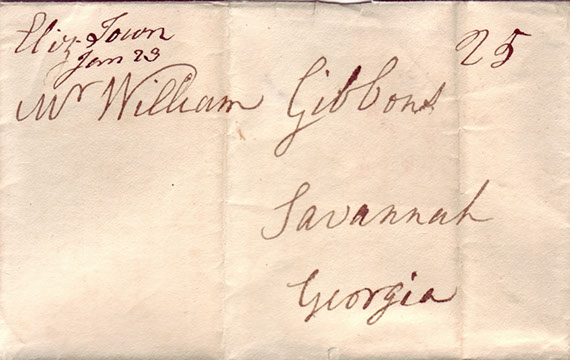 Eliz. Town
Jan 23
25
Mr William Gibbons
Savannah
Georgia